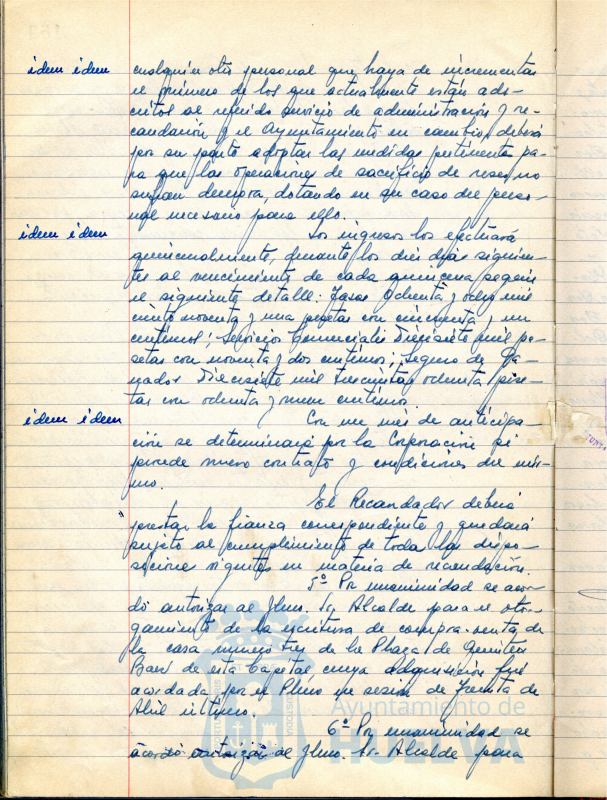 idem idem
cualquier otro personal que haya de incrementar
el número de los que actualmente están ads-
critos al referido servicio de administración y re-
caudación y el Ayuntamiento en cambio, deberá
por su parte adoptar las medidas pertinentes pa-
ra que las operaciones de sacrificio de reses, no
sufran demora, dotando en su caso del perso-
nal necesario para ello.
idem idem
Los ingresos los efectuará
quincenalmente, durante los diez días siguien-
tes al vencimiento de cada quincena según
el siguiente detalle: Tasas Ochenta y ocho mil
ciento noventa y una pesetas con cincuenta y un
centimos; Servicios Comerciales Diecisiete mil pe-
setas con noventa y dos centimos; Seguro de Ga-
nados Diecisiete mil trescientas ochenta pese-
tas con ochenta y nueve centimos.
idem idem
Con un mes de anticipa-
ción se determinará por la Corporación si
procede nuevo contrato y condiciones del mis-
mo.
El Recaudador deberá
prestar la fianza correspondiente y quedará
sujeto al cumplimiento de toda las dispo-
siciones vigentes en materia de recaudación.
5º Por unanimidad se acor-
dó autorizar al Ilmo. Sr. Alcalde para el otor-
gamiento de la escritura de compra-venta de
la casa número tres de la Plaza de Quintero
Baez de esta Capital cuya adquisición fué
acordada por el Pleno en sesión de Treinta de
Abril último.
6º Por unanimidad se
acordó autorizar al Ilmo. Sr. Alcalde para
Ayuntamiento de
HUELVA